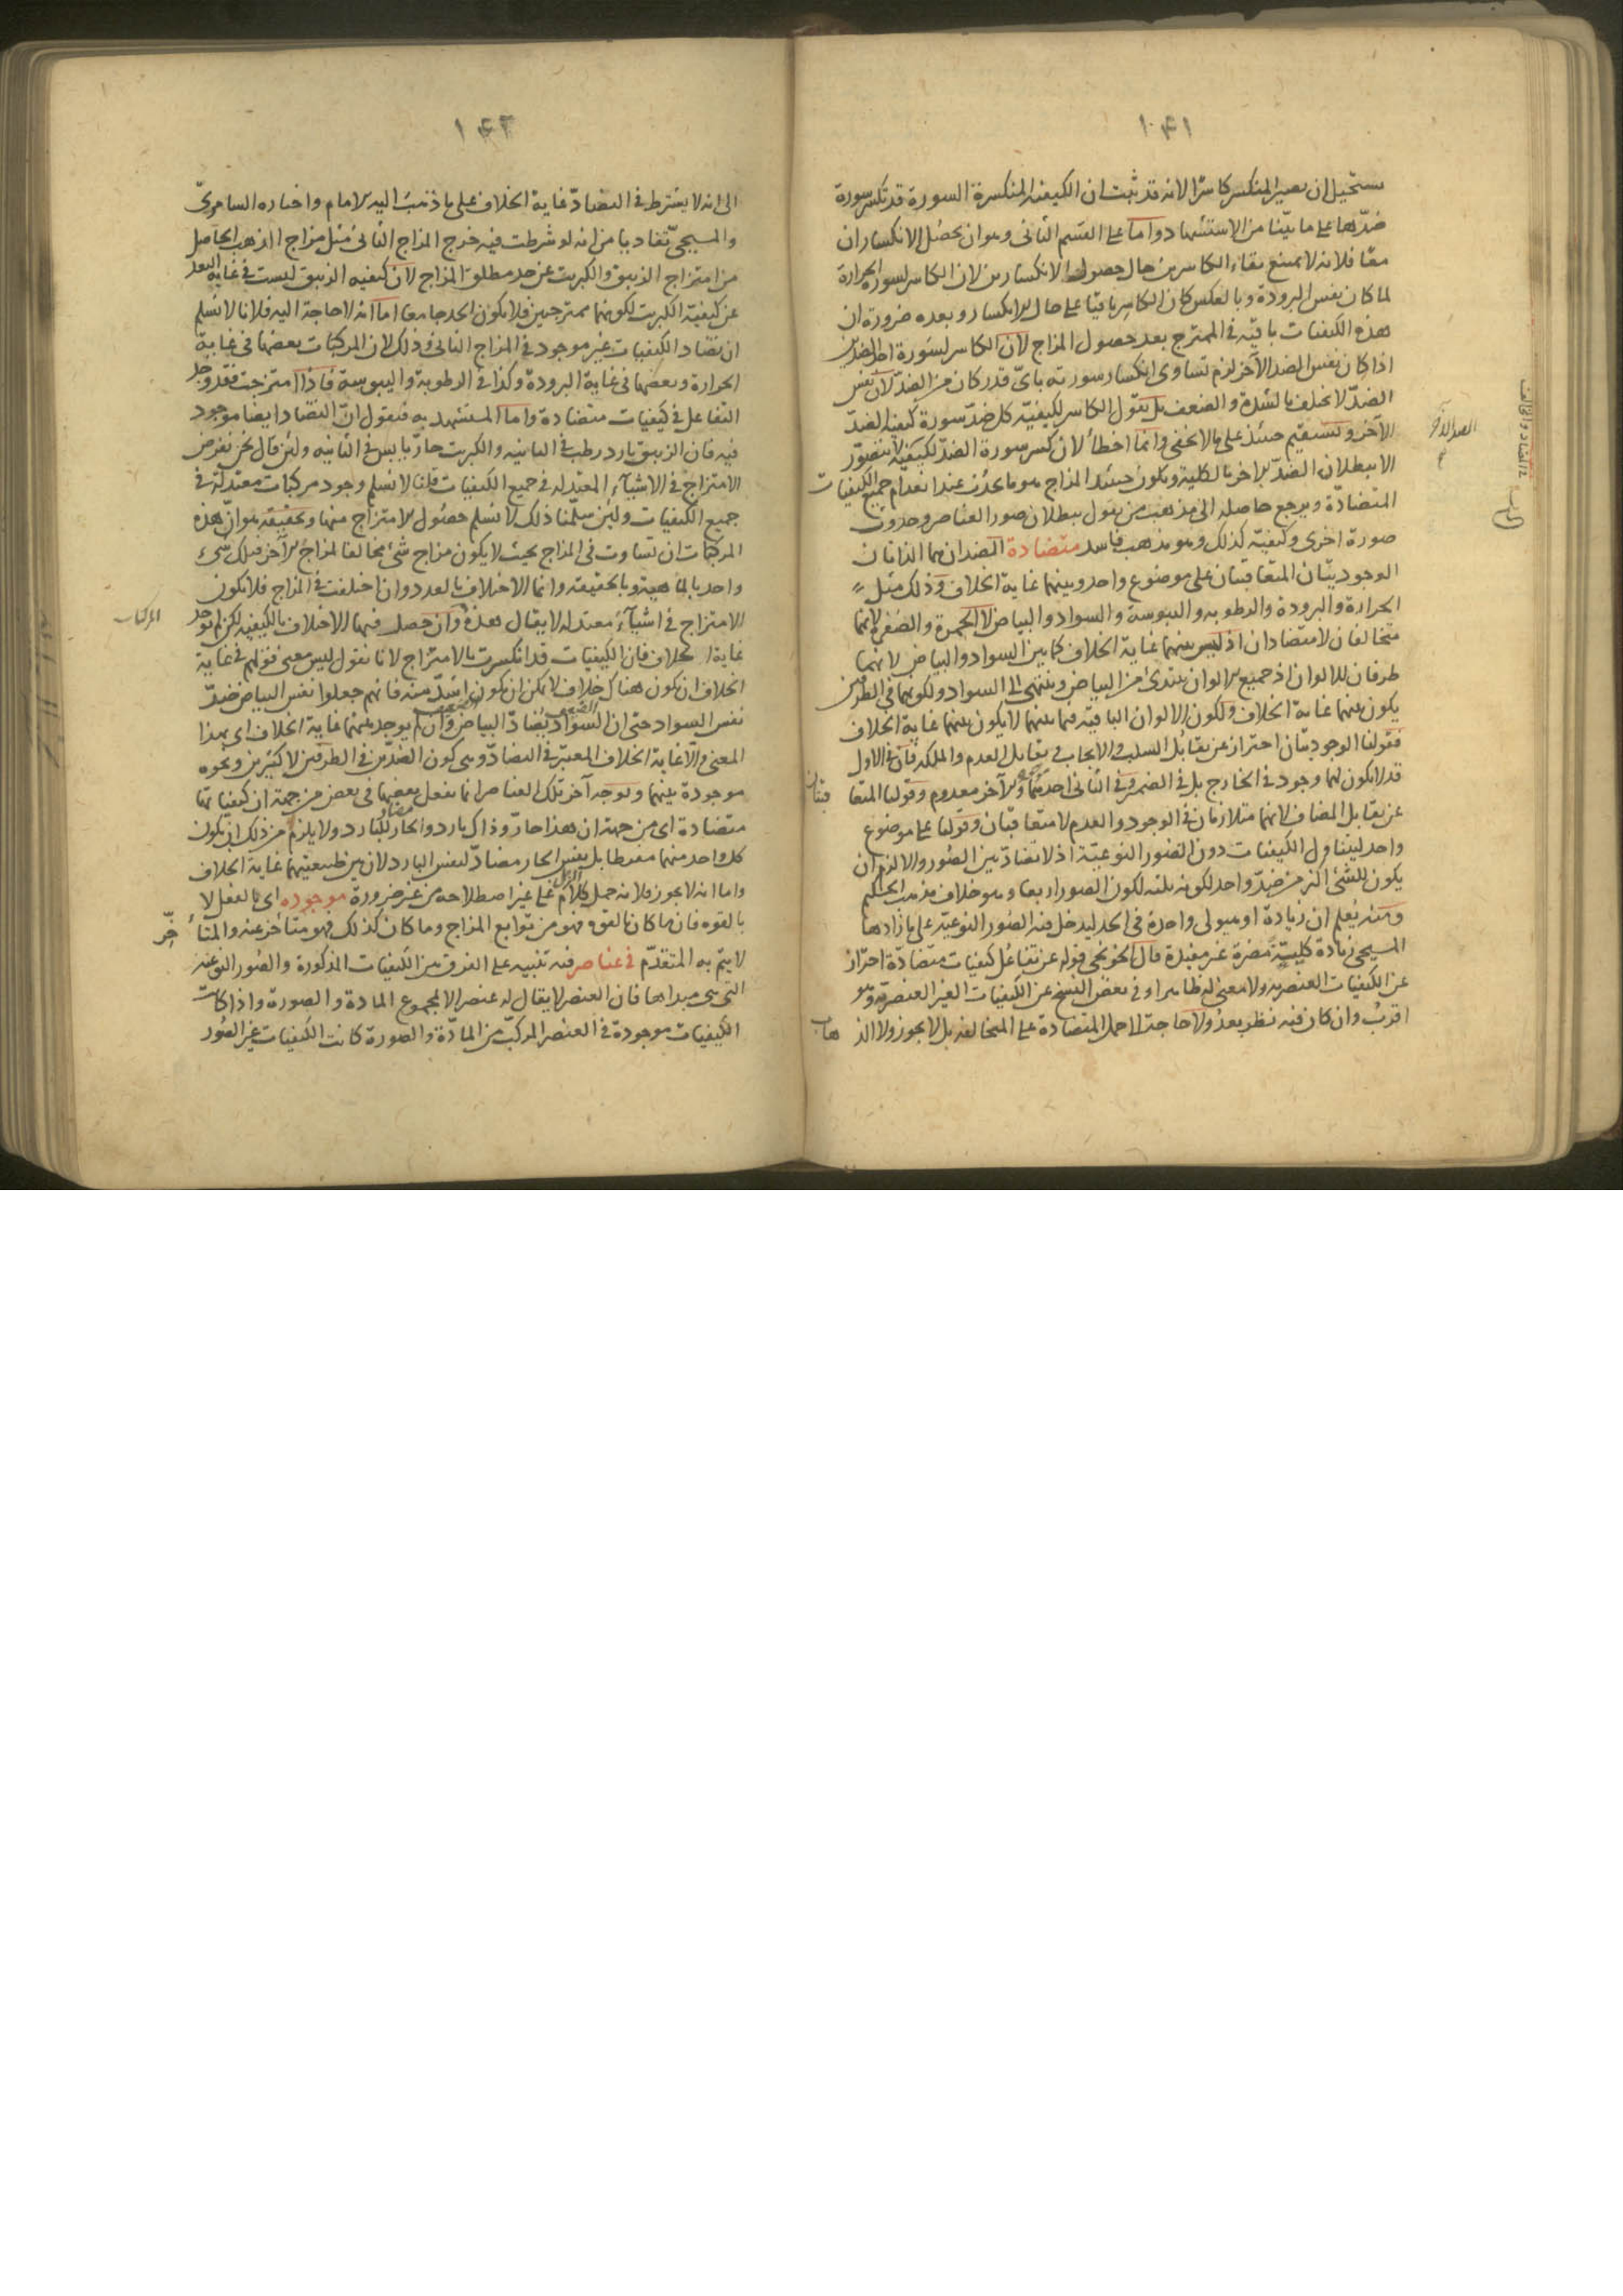 ١٤١
يستحيل ان يصير المنكسر كاسرا لانه قد ثبت ان الكيفية المنكسرة السورة قد تكسر سورة
ضدها على ما بيّنا من الاستشهاد واما على القسم الثانى وهو ان يحصل الانكساران
معًا فلانه لا يمتنع بقاء الكاسرين حال حصول الانكسارين لان الكاسر لسورة الحرارة
لما كان نفس البرودة وبالعكس كان الكاسر باقيا على حال الانكسار وبعده ضرورة ان
هذه الكيفيات باقية فى الممتزج بعد حصول المزاج لان الكاسر لسورة احد الضدين
اذا كان نفس الضد الآخر لزم تساوى انكسار سورته باىّ قدر كان من الضدّ لان نفس
الضدّ لا تختلف بالشدة والضعف بل نقول الكاسر لكيفيّة كل ضدّ سورة كيفية الضدّ
الآخر ويستقيم حينئذ على ما لا يخفى وانما اخطأ لان كسر سورة الضدّ لكيفية لا يتصوّر
الا ببطلان الضدّ الاخر بالكلية ويكون حينئذ المزاج هو ما يحدث عند انعدام جميع الكيفيات
المتضادّة ويرجع حاصله الى مذهب من يقول ببطلان صور العناصر وحدوث
صورة اخرى وكيفيّة كذلك وهو مذهب فاسد متضادة الضدان هما الذاتان
الوجوديتان المتعاقبتان على موضوع واحد وبينهما غاية الخلاف وذلك مثل
الحرارة والبرودة والرطوبة واليبوسة والسواد والبياض لا الحمرة والصفرة لانهما
متخالفان لا متضادان اذ ليس بينهما غاية الخلاف كما بين السواد والبياض لانهما
طرفان للالوان اذ جميع الالوان يبتدئ من البياض وينتهى الى السواد ولكونهما فى الطرفين
يكون بينهما غاية الخلاف ولكون الالوان الباقية فيما بينهما لا يكون بينهما غاية الخلاف
فقولنا الوجوديتان احتراز عن تقابل السلب والايجاب وتقابل العدم والملكة فان فى الاول
قد لا يكون لهما وجود فى الخارج بل فى الضمير وفى الثانى احدهما والآخر معدوم وقولنا المتعاقبتان
عن تقابل المضاف لانهما متلازمان فى الوجود والعدم لا متعاقبتان وقولنا على موضوع
واحد ليتناول الكيفيات دون الصور النوعيّة اذ لا تضادّ بين الصور والا لزم ان
يكون للشئ اكثر من ضدّ واحد لكونه ثلثة لكون الصور اربعا وهو خلاف مذهب الحكيم
ومنه يعلم ان زيادة او هيولى واحدة فى الحد ليدخل فيه الصور النوعيّة على ما زادها
المسيحى زيادة كليّة مضرة غير مفيدة قال الخونجى قوله عن تفاعل كيفيات متضادّة احتراز
عن الكيفيات العنصرية ولا معنى له ظاهرا وفى بعض النسخ عن الكيفيات الغير العنصرية وهو
اقرب وان كان فيه نظر بعد ولا حاجة الى حمل المتضادة على المتخالفة بل لا يجوز ولا الذهاب
الضد الآخر
١٤٢
الى انه لا يشترط فى التضادّ غاية الخلاف على ما ذهب اليه الامام واختاره السامرىّ
والمسيحى تفاديا من انه لو شرطت فيه خرج المزاج الثانى مثل مزاج الذهب الحاصل
من امتزاج الزيبق والكبريت عن حد مطلق المزاج لان كيفية الزيبق ليست فى غاية البعد
عن كيفيّة الكبريت لكونهما ممتزجين فلا يكون الحد جامعا اما انه لا حاجة اليه فلانا لا نسلم
ان تضاد الكيفيات غير موجود فى المزاج الثانى وذلك لان المركبات بعضها فى غاية
الحرارة وبعضها فى غاية البرودة وكذا فى الرطوبة واليبوسة فاذا امتزجت فقد وجد
التفاعل فى كيفيات متضادة واما المستشهد به فنقول ان التضاد ايضا موجود
فيه فان الزيبق بارد رطب فى الثانيه والكبريت حارّ يابس فى الثانيه ولئن قال نحن نفرض
الامتزاج فى الاشياء المعتدلة فى جميع الكيفيات قلنا لا نسلم وجود مركبات معتدلة فى
جميع الكيفيات ولئن سلّمنا ذلك لا نسلم حصول الامتزاج منها وتحقيقه هو ان هذه
المركبات ان تساوت فى المزاج بحيث لا يكون مزاج شئ مخالفا لمزاج الآخر فتلك شئ
واحد بالماهية وبالحقيقة وانما الاختلاف بالعدد وان اختلفت فى المزاج فلا يكون
الامتزاج فى اشياء معتدلة لا يقال هذه وان حصل فيها الاختلاف بالكيفية لكن لم توجد
غاية الخلاف فان الكيفيات قد انكسرت بالامتزاج لانا نقول ليس معنى قولهم فى غاية
الخلاف ان يكون هناك خلاف لا يمكن ان يكون اشدّ منه فانهم جعلوا نفس البياض ضدّ
نفس السواد حتى ان السواد الضعيف يضادّ البياض الضعيف وان لم يوجد بينهما غاية الخلاف اى بهذا
المعنى والا غاية الخلاف المعتبر فى التضادّ وهى كون الضدّين فى الطرفين لا كثيرين ونحوه
موجودة بينهما وبوجه آخر تلك العناصر انما يفعل بعضها فى بعض من جهة ان كيفياتها
متضادة اى من جهة ان هذا حارّ وذاك بارد والحار مضاد للبارد ولا يلزم من ذلك ان يكون
كل واحد منهما مفرطا بل نفس الحار مضادّ لنفس البارد لان بين طبيعتيهما غاية الخلاف
واما انه لا يجوز فلانه حمل كلام على غير اصطلاحه من غير ضرورة موجوده اى بالفعل لا
بالقوه فان ما كان بالقوه فهو من توابع المزاج وما كان كذلك فهو متأخر عنه والمتأخّر
لا يتم به المتقدّم فى عناصر فيه تنبيه على الفرق بين الكيفيات المذكورة والصور النوعية
التى هى مبداها فان العنصر لا يقال له عنصر الا لمجموع المادة والصورة واذا كانت
الكيفيات موجودة فى العنصر المركب من المادّة والصورة كانت الكيفيات غير الصور
المركبات